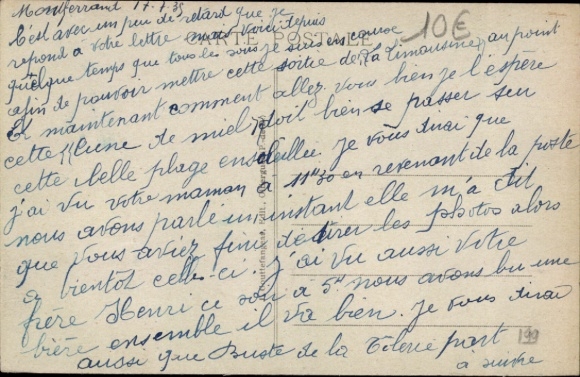 Montferrand 17-7-39
10€
CARTE POSTALE
C'est avec un peu de retard que je
repond a votre lettre mais voici depuis
quelque temps que tous les soirs je suis en course
afin de pouvoir mettre cette sortie de (la Limousine) au point
Et maintenant comment allez vous bien je l'espère
cette (Lune de miel) doit bien se passer sur
cette belle plage ensoleillée. Je vous dirai que
j'ai vu votre maman a 11H30 en revenant de la poste
nous avons parlé un instant elle m'a dit
que vous aviez fini de tirer les photos alors
a bientot celles-ci. J'ai vu aussi votre
frère Henri ce soir a 5H nous avons bu une
bière ensemble il va bien. Je vous dirai
aussi que de la part
à suivre
199